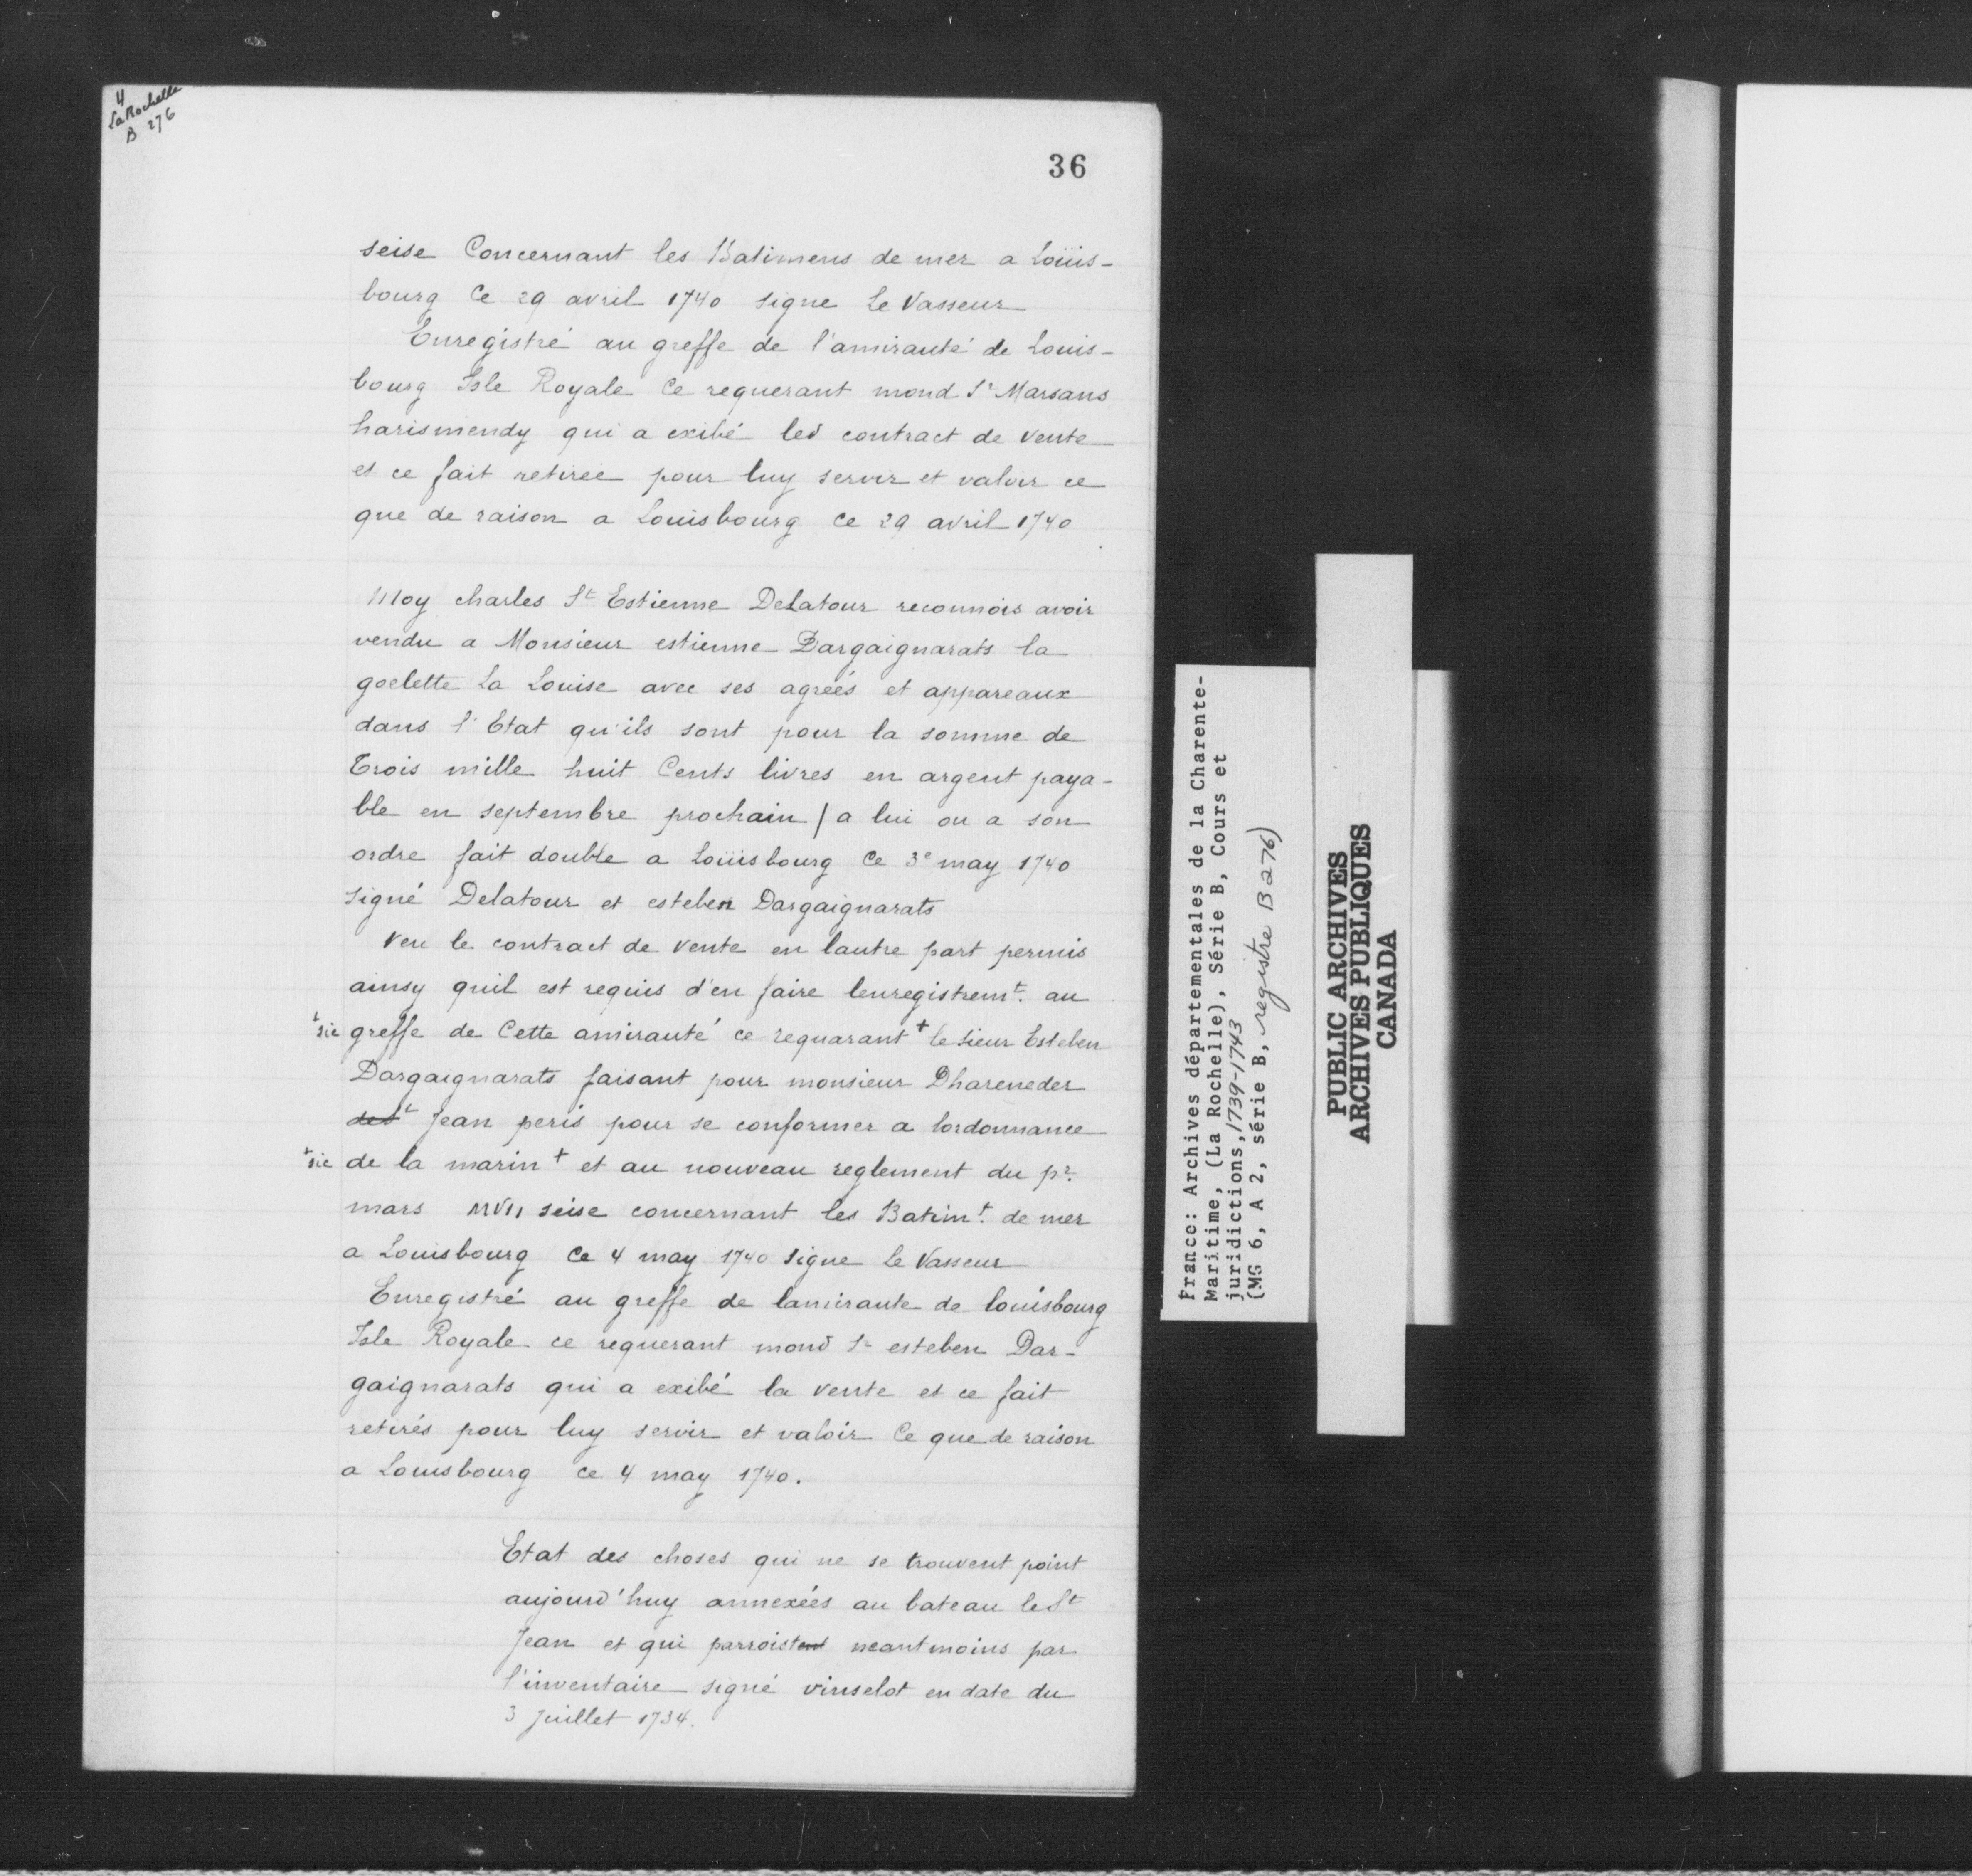 4
La Rochelle
B 276
36
seise Concernant les Batimens de mer a Loüis-
bourg Ce 29 avril 1740 signe Le Vasseur
Enregistré au greffe de l'amirauté de Louis-
bourg Isle Royale Ce requerant mond Sr Marsans
harismendy qui a exibé led contract de vente
et ce fait retirée pour luy servir et valoir ce
que de raison a Louisbourg Ce 29 avril 1740
Moy charles St Estienne DeLatour reconnois avoir
vendu a Monsieur estienne Dargaignarats la
goelette La Louise avec ses agreés et appareaux
dans l'Etat qu'ils sont pour la somme de
Trois mille huit Cents livres en argent paya-
ble en septembre prochain / a lui ou a son
ordre fait double a Loüisbourg Ce 3e may 1740
signé Delatour et esteben Dargaignarats
Veu le contract de vente en lautre part permis
ainsy quil est requis d'en faire lenregistremt. au
+sic greffe de Cette amirauté ce requarant + le sieur Esteben
Dargaignarats faisant pour monsieur Dhareneder
det Jean peris pour se conformer a lordonnance
+sic de la marin + et au nouveau reglement du pr.
mars MVII seise concernant les Batimt. de mer
a Louisbourg Ce 4 may 1740 signe le Vasseur
Enregistré au greffe de lamiraute de louisbourg
Isle Royale ce requerant mond Sr esteben Dar-
gaignarats qui a exibé la vente et ce fait
retirés pour luy servir et valoir Ce que de raison
a Louisbourg ce 4 may 1740.
Etat des choses qui ne se trouvent point
aujourd'huy annexées au bateau le St
Jean et qui parroistent neantmoins par
l'inventaire signé vinselot en date du
3 Juillet 1734.
France: Archives départementales de la Charente-
Maritime, (La Rochelle), Série B, Cours et
juridictions, 1739-1743
(MG 6, A 2, série B, registre B 276)
PUBLIC ARCHIVES
ARCHIVES PUBLIQUES
CANADA